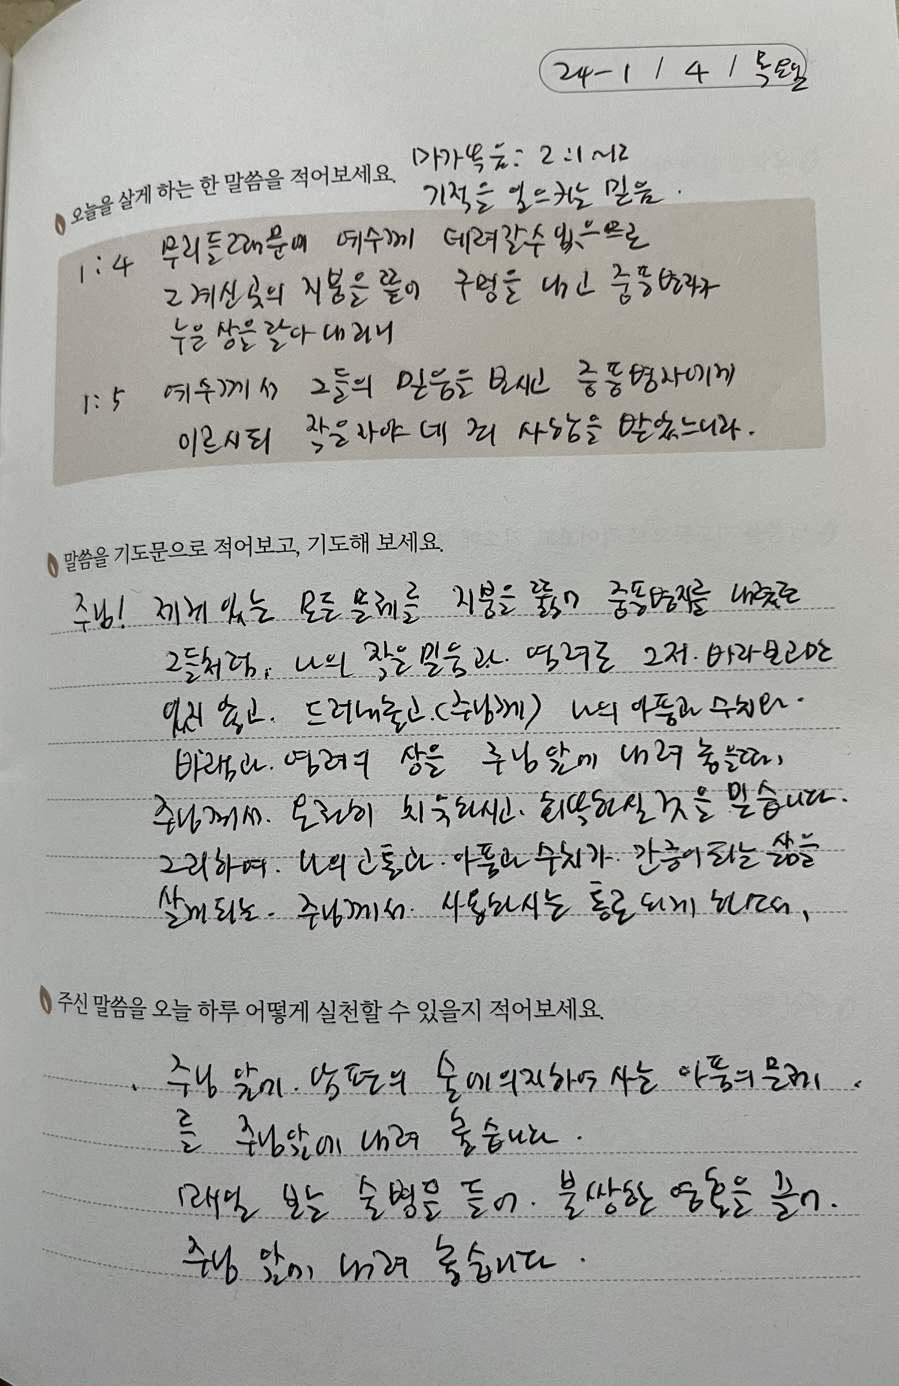 24-1 / 4 / 목요일
오늘을 살게 하는 한 말씀을 적어보세요.
마가복음: 2:1~12
기적을 일으키는 믿음.
1:4 무리들 때문에 예수께 데려갈 수 없으므로
그 계신 곳의 지붕을 뜯어 구멍을 내고 중풍병자가
누운 상을 달아 내리니
1:5 예수께서 그들의 믿음을 보시고 중풍병자에게
이르시되 작은 자야 네 죄 사함을 받았느니라.
말씀을 기도문으로 적어보고, 기도해 보세요.
주님! 제게 있는 모든 문제를 지붕을 뚫어 중풍병자를 내렸던
그들처럼, 나의 작은 믿음과 염려로 그저 바라보고만
있지 않고. 드러내놓고.(주님께) 나의 아픔과 수치와.
바램과. 염려의 상을 주님 앞에 내려 놓을때,
주님께서. 온전히 치유하시고. 회복하실 것을 믿습니다.
그리하여. 나의 고통과. 아픔과 수치가. 간증이 되는 삶을
살게 되는. 주님께서. 사용하시는 통로 되게 하소서,
주신 말씀을 오늘 하루 어떻게 실천할 수 있을지 적어보세요.
주님 앞에. 남편의 술에 의지하여 사는 아픔의 문제
를 주님앞에 내려 놓습니다.
매일 보는 술병을 들어. 불쌍한 영혼을 끌어.
주님 앞에 내려 놓습니다.